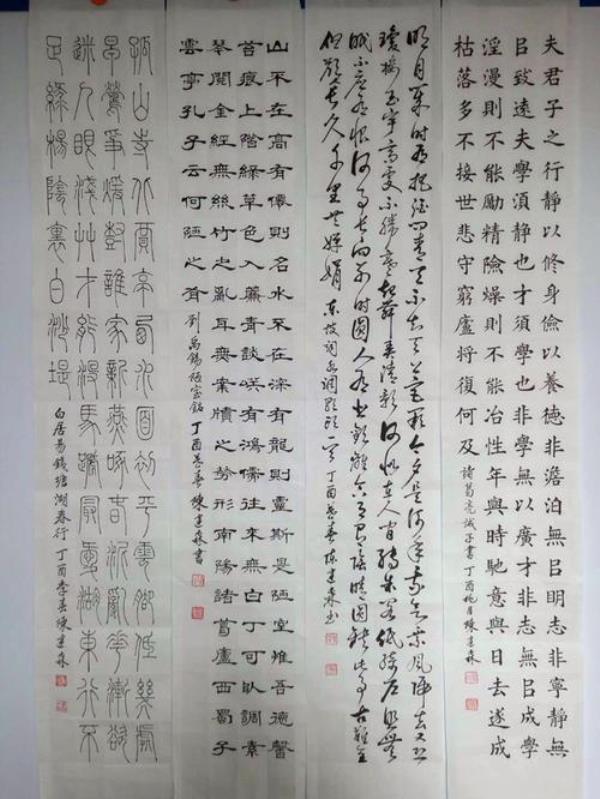 夫君子之行靜以修身儉以養德非澹泊無㠯明志非寧靜無
㠯致遠夫學須靜也才須學也非學無以廣才非志無㠯成學
淫漫則不能勵精險燥則不能冶性年與時馳意與日去遂成
枯落多不接世悲守窮廬將復何及 諸葛亮誡子書丁酉桃月陳建森
明月幾時有把酒問青天不知天上宮闕今夕是何年我欲乘風歸去又恐
瓊樓玉宇高處不勝寒起舞弄清影何似在人間轉朱閣低綺戶照無
眠不應有恨何事長向別時圓人有悲歡離合月有陰晴圓缺此事古難全
但願人長久千里共嬋娟 東坡詞水調歌頭一首 丁酉暮春陳建森書
山不在高有僊則名水不在深有龍則靈斯是陋室惟吾德馨
苔痕上階綠草色入簾青談笑有鴻儒往來無白丁可以調素
琴閱金經無絲竹之亂耳無案牘之勞形南陽諸葛廬西蜀子
雲亭孔子云何陋之有 劉禹錫陋室銘丁酉暮春陳建森書
孤山寺北賈亭西水面初平雲腳低幾處
早鶯爭暖樹誰家新燕啄春泥亂花漸欲
迷人眼淺草才能沒馬蹄最愛湖東行不
足綠楊陰裏白沙堤 白居易錢塘湖春行丁酉季春陳建森